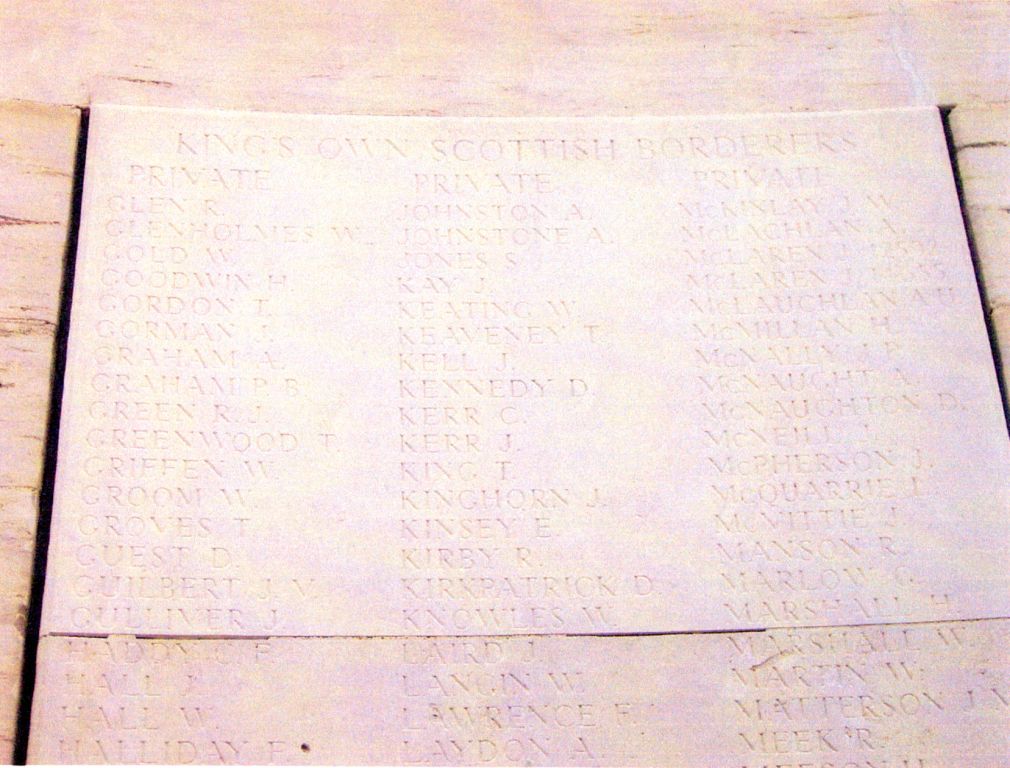 KING'S OWN SCOTTISH BORDERERS
PRIVATE
GLEN R.
GLENHOLMES W.
GOLD W.
GOODWIN H.
GORDON T.
GORMAN J.
GRAHAM A.
GRAHAM P. B.
GREEN R. J.
GREENWOOD T.
GRIFFEN W.
GROOM W.
GROVES T.
GUEST D.
GUILBERT J. V.
GULLIVER J.
HADDY C. F.
HALL J.
HALL W.
HALLIDAY F.
PRIVATE
JOHNSTON A.
JOHNSTONE A.
JONES S.
KAY J.
KEATING W.
KEAVENEY T.
KELL J.
KENNEDY D.
KERR C.
KERR J.
KING T.
KINGHORN J.
KINSEY E.
KIRBY R.
KIRKPATRICK D.
KNOWLES W.
LAIRD J.
LANGIN W.
LAWRENCE F.
LAYDON A.
PRIVATE
McKINLAY J. W.
McLACHLAN A.
McLAREN J.
McLAREN J.
McLAUCHLAN A. U.
McMILLAN H.
McNALLY J. P.
McNAUGHT A.
McNAUGHTON D.
McNEILL J.
McPHERSON J.
McQUARRIE J.
McVITTIE J.
MANSON R.
MARLOW G.
MARSHALL H.
MARSHALL W.
MARTIN W.
MATTERSON J.
MEEK R.